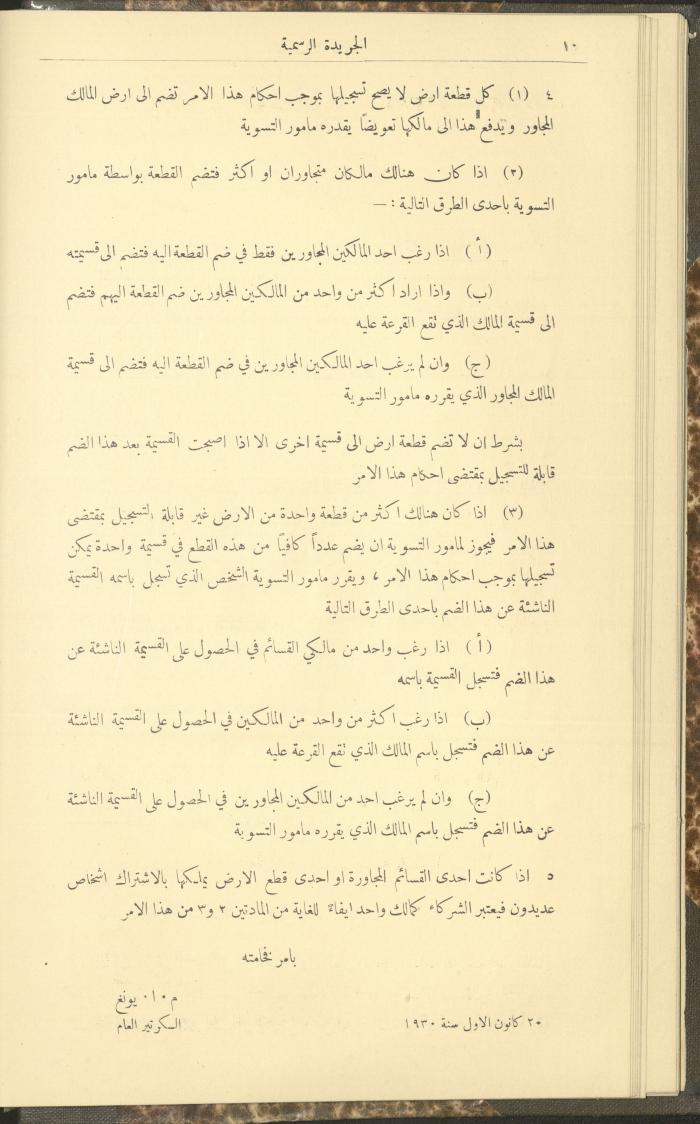 ١٠
الجريدة الرسمية
٤ (١) كل قطعة ارض لا يصح تسجيلها بموجب احكام هذا الامر تضم الى ارض المالك
المجاور ويدفع هذا الى مالكها تعويضًا يقدره مامور التسوية
(٢) اذا كان هنالك مالكان متجاوران او اكثر فتضم القطعة بواسطة مامور
التسوية باحدى الطرق التالية : —
(أ) اذا رغب احد المالكين المجاورين فقط في ضم القطعة اليه فتضم الى قسيمته
(ب) واذا اراد اكثر من واحد من المالكين المجاورين ضم القطعة اليهم فتضم
الى قسيمة المالك الذي تقع القرعة عليه
(ج) وان لم يرغب احد المالكين المجاورين في ضم القطعة اليه فتضم الى قسيمة
المالك المجاور الذي يقرره مامور التسوية
بشرط ان لا تضم قطعة ارض الى قسيمة اخرى الا اذا اصبحت القسيمة بعد هذا الضم
قابلة للتسجيل بمقتضى احكام هذا الامر
(٣) اذا كان هنالك اكثر من قطعة واحدة من الارض غير قابلة التسجيل بمقتضى
هذا الامر فيجوز لمامور التسوية ان يضم عدداً كافيًا من هذه القطع في قسيمة واحدة يمكن
تسجيلها بموجب احكام هذا الامر ، ويقرر مامور التسوية الشخص الذي تسجل باسمه القسيمة
الناشئة عن هذا الضم باحدى الطرق التالية
(أ) اذا رغب واحد من مالكي القسائم في الحصول على القسيمة الناشئة عن
هذا الضم فتسجل القسيمة باسمه
(ب) اذا رغب اكثر من واحد من المالكين في الحصول على القسيمة الناشئة
عن هذا الضم فتسجل باسم المالك الذي تقع القرعة عليه
(ج) وان لم يرغب احد من المالكين المجاورين في الحصول على القسيمة الناشئة
عن هذا الضم فتسجل باسم المالك الذي يقرره مامور التسوية
٥ اذا كانت احدى القسائم المجاورة او احدى قطع الارض يملكها بالاشتراك اشخاص
عديدون فيعتبر الشركاء كمالك واحد ايفاءً للغاية من المادتين ٢ و٣ من هذا الامر
بامر فخامته
م٠ ا٠ يونغ
السكرتير العام
٢٠ كانون الاول سنة ١٩٣٠